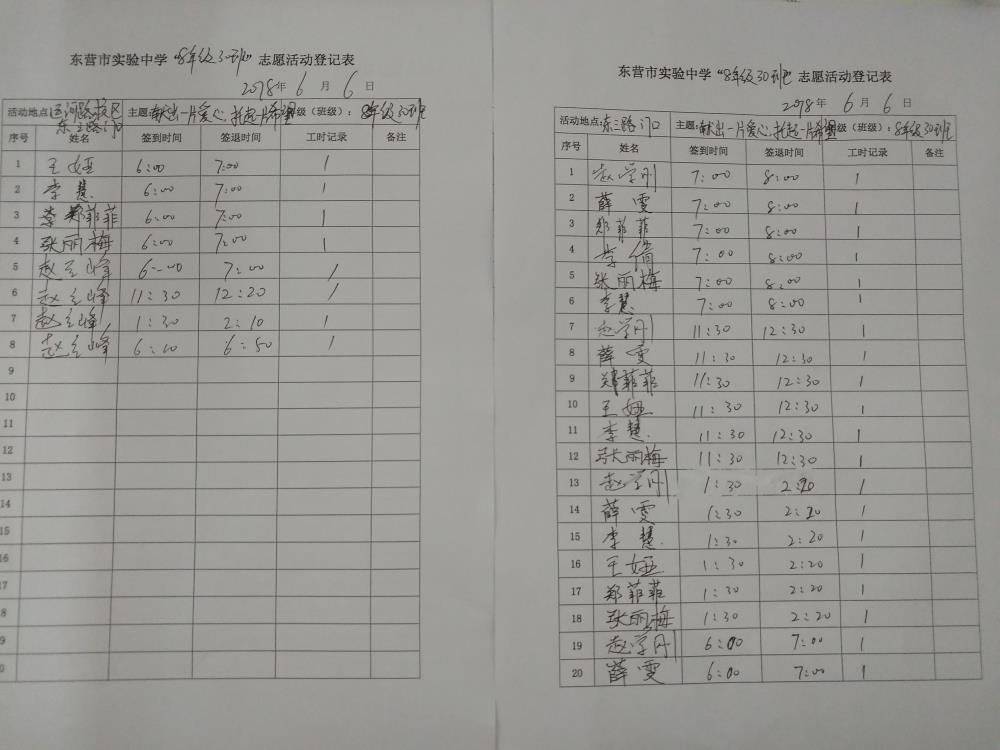 东营市实验中学“8年级30班”志愿活动登记表
2018年 6 月 6 日
活动地点：运河路校区东三路门口 主题：献出一片爱心，托起一片希望 级（班级）：8年级30班
序号 姓名 签到时间 签退时间 工时记录 备注
1 王娅 6:00 7:00 1
2 李慧 6:00 7:00 1
3 郑菲菲 6:00 7:00 1
4 张丽梅 6:00 7:00 1
5 赵立峰 6:00 7:00 1
6 赵立峰 11:30 12:20 1
7 赵立峰 1:30 2:10 1
8 赵立峰 6:10 6:50 1
9
10
11
12
13
14
15
16
17
18
19
20
东营市实验中学“8年级30班”志愿活动登记表
2018年 6 月 6 日
活动地点：东三路门口 主题：献出一片爱心，托起一片希望 级（班级）：8年级30班
序号 姓名 签到时间 签退时间 工时记录 备注
1 赵学刚 7:00 8:00 1
2 薛雯 7:00 8:00 1
3 郑菲菲 7:00 8:00 1
4 李倩 7:00 8:00 1
5 张丽梅 7:00 8:00 1
6 李慧 7:00 8:00 1
7 赵学刚 11:30 12:30 1
8 薛雯 11:30 12:30 1
9 郑菲菲 11:30 12:30 1
10 王娅 11:30 12:30 1
11 李慧 11:30 12:30 1
12 张丽梅 11:30 12:30 1
13 赵学刚 1:30 2:20 1
14 薛雯 1:30 2:20 1
15 李慧 1:30 2:20 1
16 王娅 1:30 2:20 1
17 郑菲菲 1:30 2:20 1
18 张丽梅 1:30 2:20 1
19 赵学刚 6:00 7:00 1
20 薛雯 6:00 7:00 1